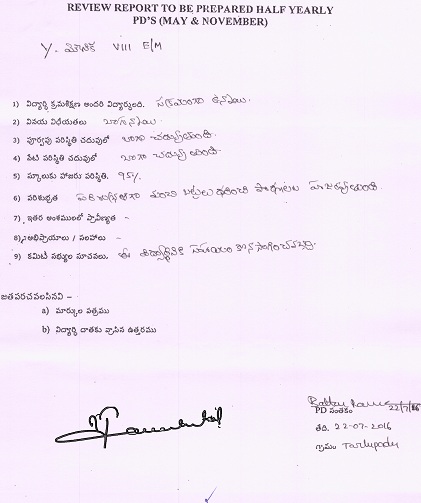 REVIEW REPORT TO BE PREPARED HALF YEARLY
PD'S (MAY & NOVEMBER)
Y. మౌనిక VIII E/M
1) విద్యార్థి క్రమశిక్షణ అందరి విద్యార్థులది. సక్రమంగా ఉన్నాయి.
2) వినయ విధేయతలు బాగున్నాయి.
3) పూర్వపు పరిస్థితి చదువులో బాగా చదువుతుంది.
4) నేటి పరిస్థితి చదువులో బాగా చదువుతుంది.
5) స్కూలుకు హాజరు పరిస్థితి. 95%
6) పరిశుభ్రత పరిశుభ్రంగా మంచి బట్టలు ధరించి పాఠశాలకు హాజరవుతుంది
7) ఇతర అంశములలో ప్రావీణ్యత -
8) అభిప్రాయాలు / సలహాలు -
9) కమిటీ సభ్యుల సూచనలు. ఈ విద్యార్థినికి సహాయం కొనసాగించవచ్చు.
జతపరచవలసినవి –
a) మార్కుల పత్రము
b) విద్యార్థి దాతకు వ్రాసిన ఉత్తరము
22/7/16
PD సంతకం
తేది. 22-07-2016
గ్రామం Tadlapodu